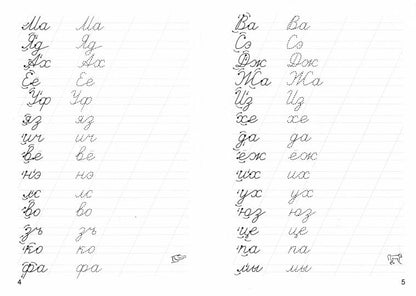 Ма Ма
Яд Яд
Ах Ах
Ее Ее
Уф Уф
яз яз
ич ич
ве ве
нэ нэ
лс лс
во во
зъ зъ
ко ко
фа фа
4
Ва Ва
Сэ Сэ
Дж Дж
Жа Жа
Из Из
хе хе
да да
еж еж
их их
ух ух
юз юз
це це
па па
мы мы
5